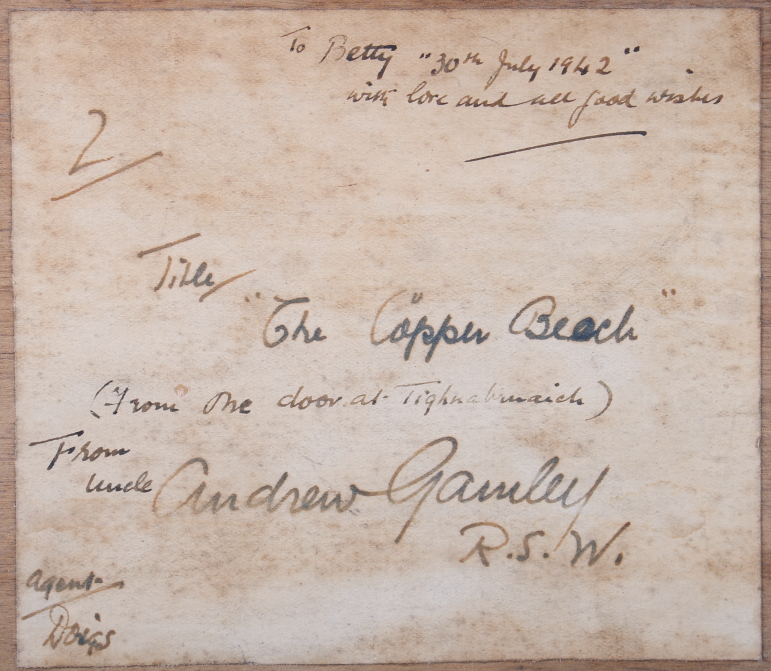 To Betty "30th July 1942"
with love and all good wishes
2
Title
"The Copper Beech"
(From the door at Tighnabruaich)
From
uncle Andrew Gamley
R.S.W.
Agent
Doigs